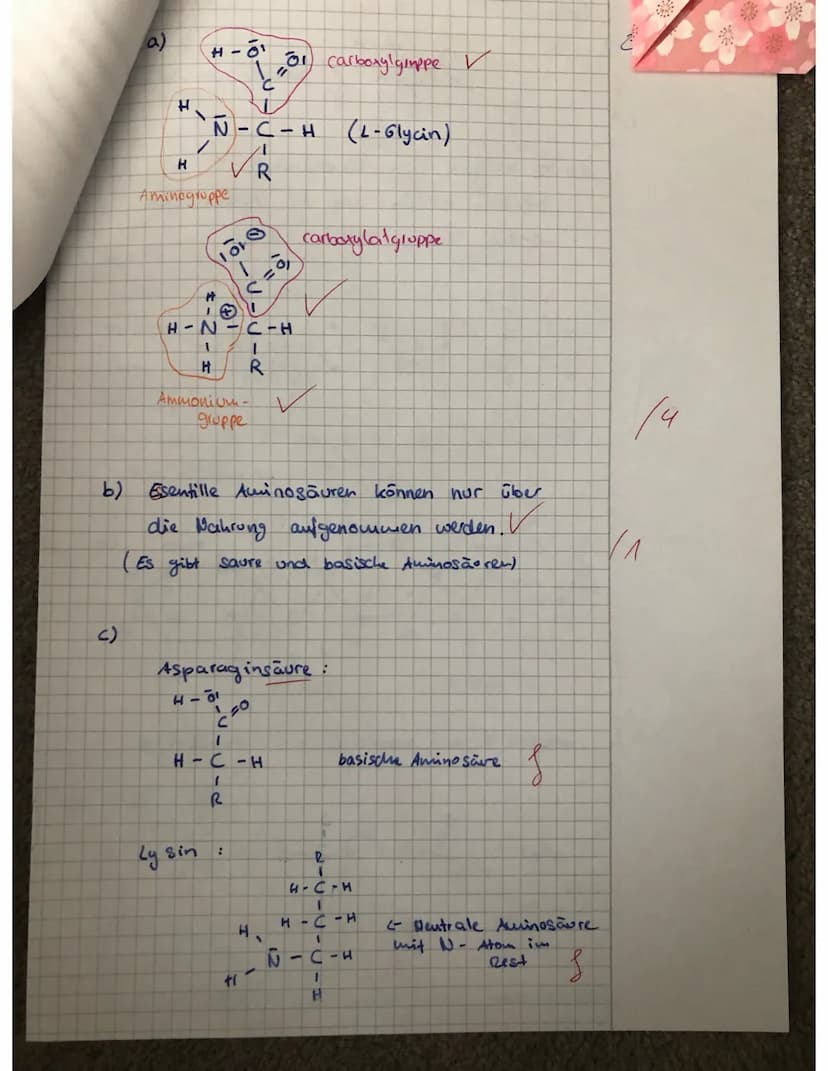 a)
H - O
O
carboxylgruppe
C
H
N - C - H (L-Glycin)
H
R
Aminogruppe
⊖
carboxylatgruppe
O
O
C
H ⊕
H - N - C - H
H R
Ammonium-
gruppe
/4
b) Esentille Aminosäuren können nur über
die Nahrung aufgenommen werden.
/1
(Es gibt saure und basische Aminosäuren)
c)
Asparaginsäure :
H - O
O
C
H - C - H
basische Aminosäure
R
Lysin :
R
H - C - H
H - C - H
← Neutrale Aminosäure
H
mit N - Atom im
N - C - H
Rest
H
H